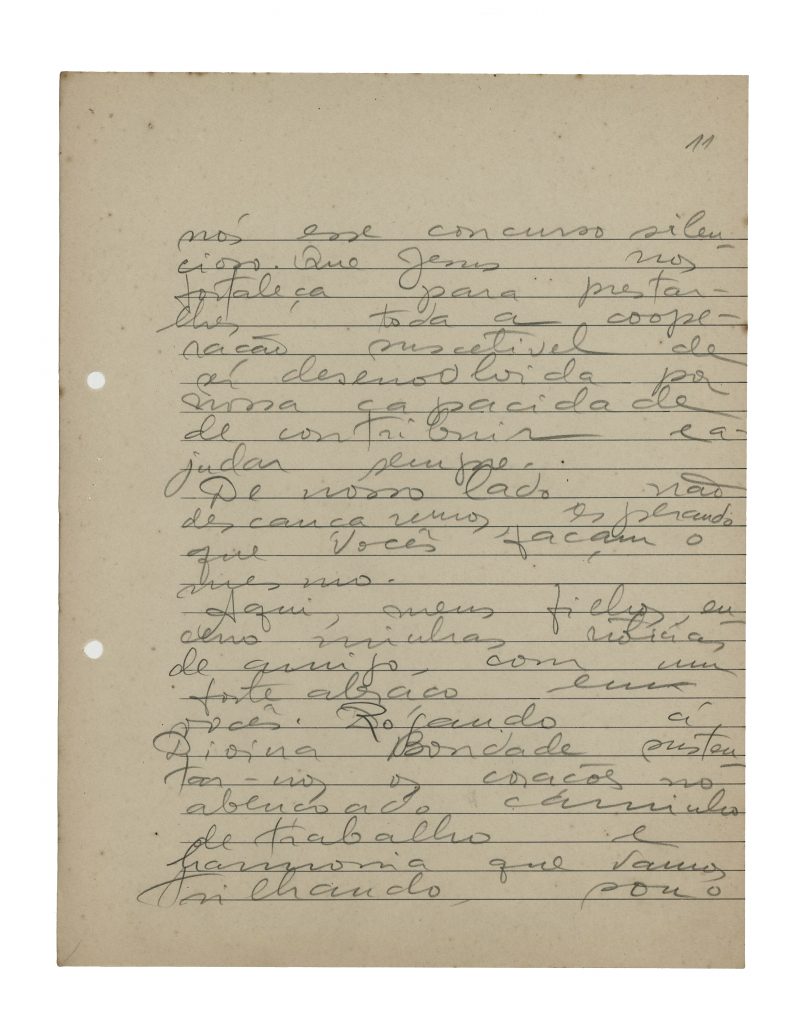 11
nós esse concurso silen-
cioso. Que Jesus nos
fortaleça para prestar-
lhes toda a coope-
ração suscetivel de
sê desenvolvida por
nossa capacidade
de contribuir e a-
judar sempre.
De nosso lado não
descançaremos, esperando
que vocês façam o
mesmo.
Aqui, meus filhos, en-
cerro minhas notícias
de amigo, com um
forte abraço em
vocês. Rogando á
Divina Bondade susten-
tar-nos os corações no
abençoado caminho
de trabalho e
harmonia que vamos
trilhando, sou o